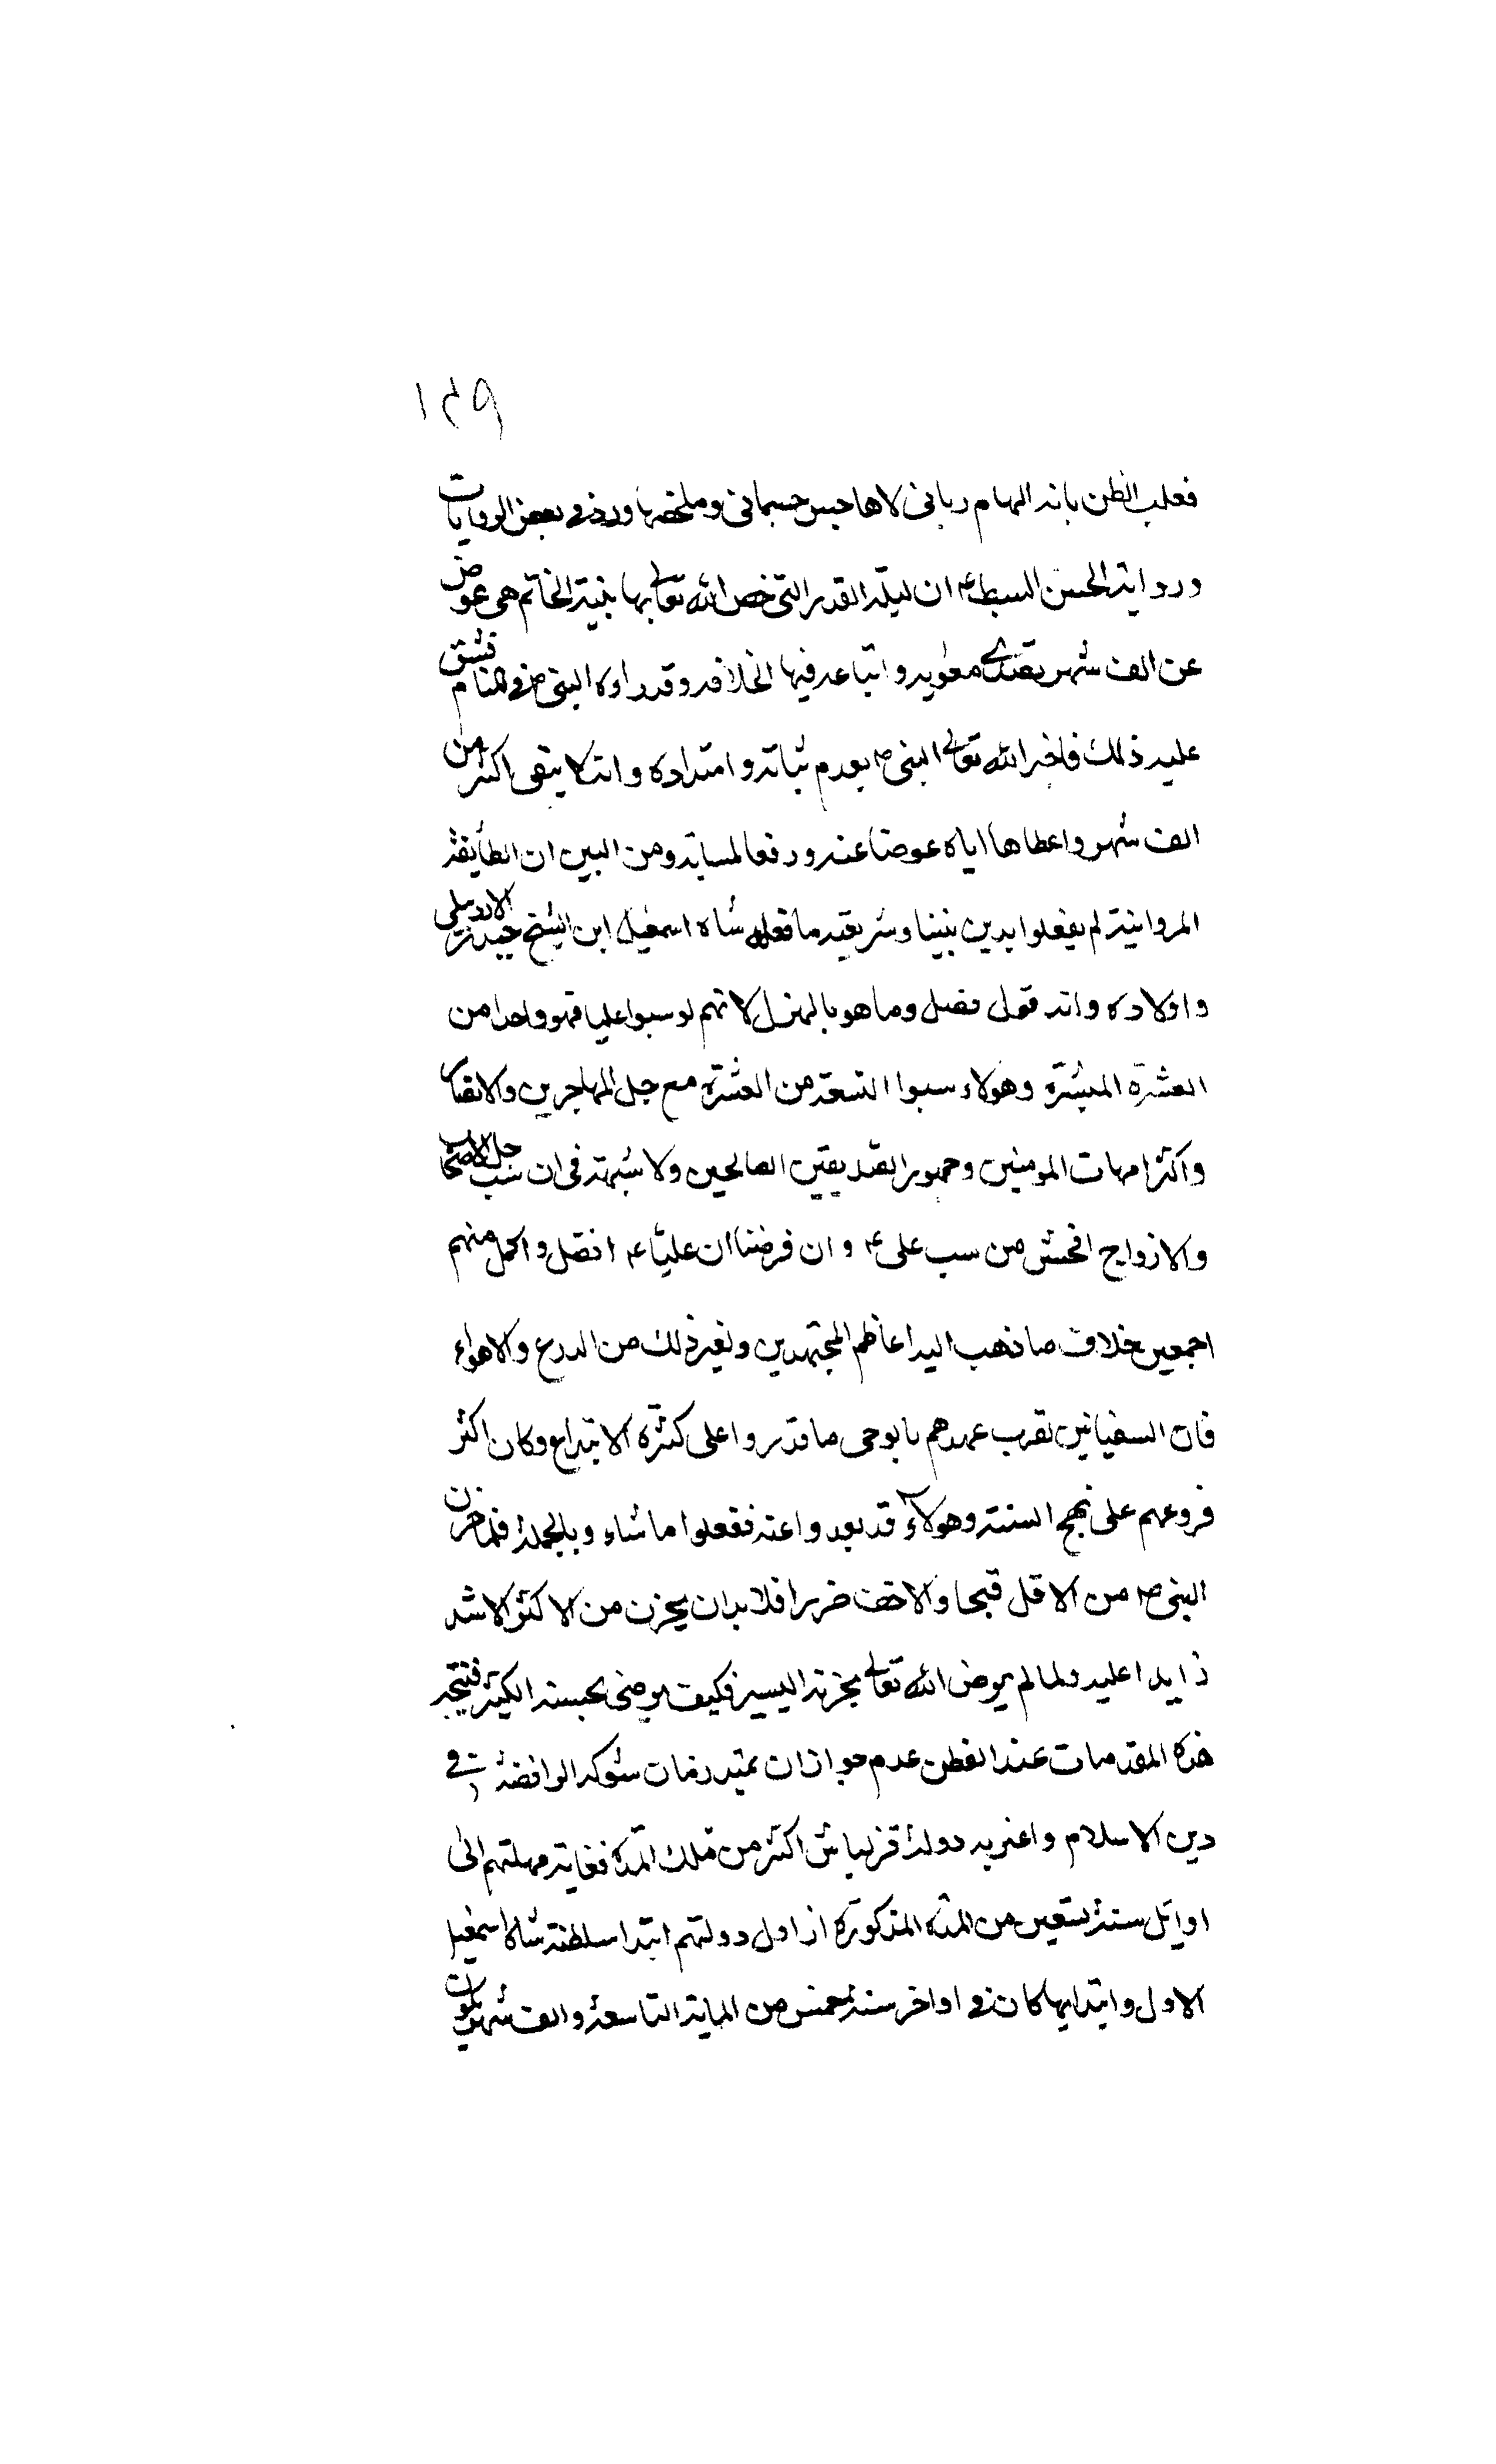 ١٢٩
فغلب الظن بانه الهام ربانى لا هاجس جسمانى وملخصها ورد فى بعض الروايات
ورواية الحسن السبط ع ان ليلة القدر التى خص الله تعالى بها نبيه الخاتم هى عوض
عن الف شهر معويه واتباعه فيها الخلافه وقد راوه النبى ص فى المنام فشق
عليه ذلك فاخبر الله تعالى النبى ص بعدم ثباته وامتداده وانه لا يبقى اكثر من
الف شهر واعطاها اياه عوضا عنه ودفعا ومن البين ان الطايفة
المروانية لم يفعلوا بدين نبينا وشريعته ما فعله شاه اسمعيل ابن الشيخ حيدر الاردبيلى
واولاده وانه قول فصل وما هو بالهزل لانهم لو سبوا عليا فهو واحد من
العشرة المبشرة وهولاء سبوا التسعة من العشرة مع جل المهاجرين والانصار
واكثر امهات المومنين وجمهور الصديقين الصالحين ولا شبهة فى ان سب جل الاصحاب
والازواج افحش من سب على ع وان فرضنا ان عليا ع افضل واكمل منهم
اجمعين خلاف ما ذهب اليه اعاظم المجتهدين ولغير ذلك من البدع والاهواء
فان السفيانين لقرب عهدهم بالوحى ما قدروا على كثرة الابتداع وكان اكثر
فروعهم على نهج السنة وهولاء قد بعدوا عنه ففعلوا ما شاء وبالجملة فلما حزن
النبى ص من الاقل قبحا والاخف ضررا فلا بد ان يحزن من الاكثر الاشد
زايدا عليه ولما لم يرض الله تعالى بحزنه اليسير فكيف يرضى الكثير فينتجه
هذه المقدمات عند الفطن عدم جواز ان يمتد زمان شوكة الرافضة فى
دين الاسلام واعنى به دولة قزلباش اكثر من تلك المدة فغاية مهلتهم الى
اوايل سنة تسعين من المدة المذكورة اذ اول دولتهم ابتدا سلطنة شاه اسمعيل
الاول وابتدايها كان فى اواخر سنة خمس من الماية التاسعة والف شهر يكون